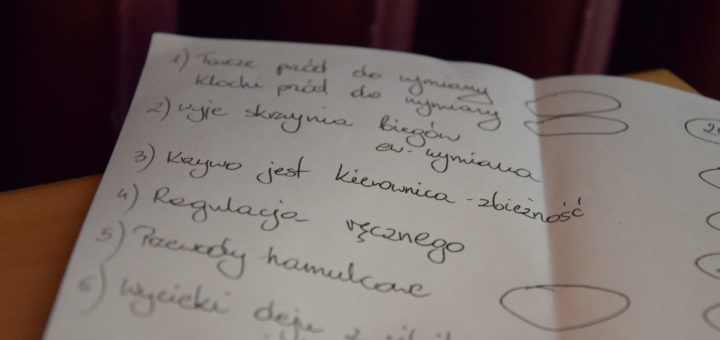 1) Tarcze przód do wymiany
Klocki przód do wymiany
2) wyje skrzynia biegów
ew. wymiana
3) Krzywo jest kierownica - zbieżność
4) Regulacja ręcznego
5) Przewody hamulcowe
6) Wycieki oleju z